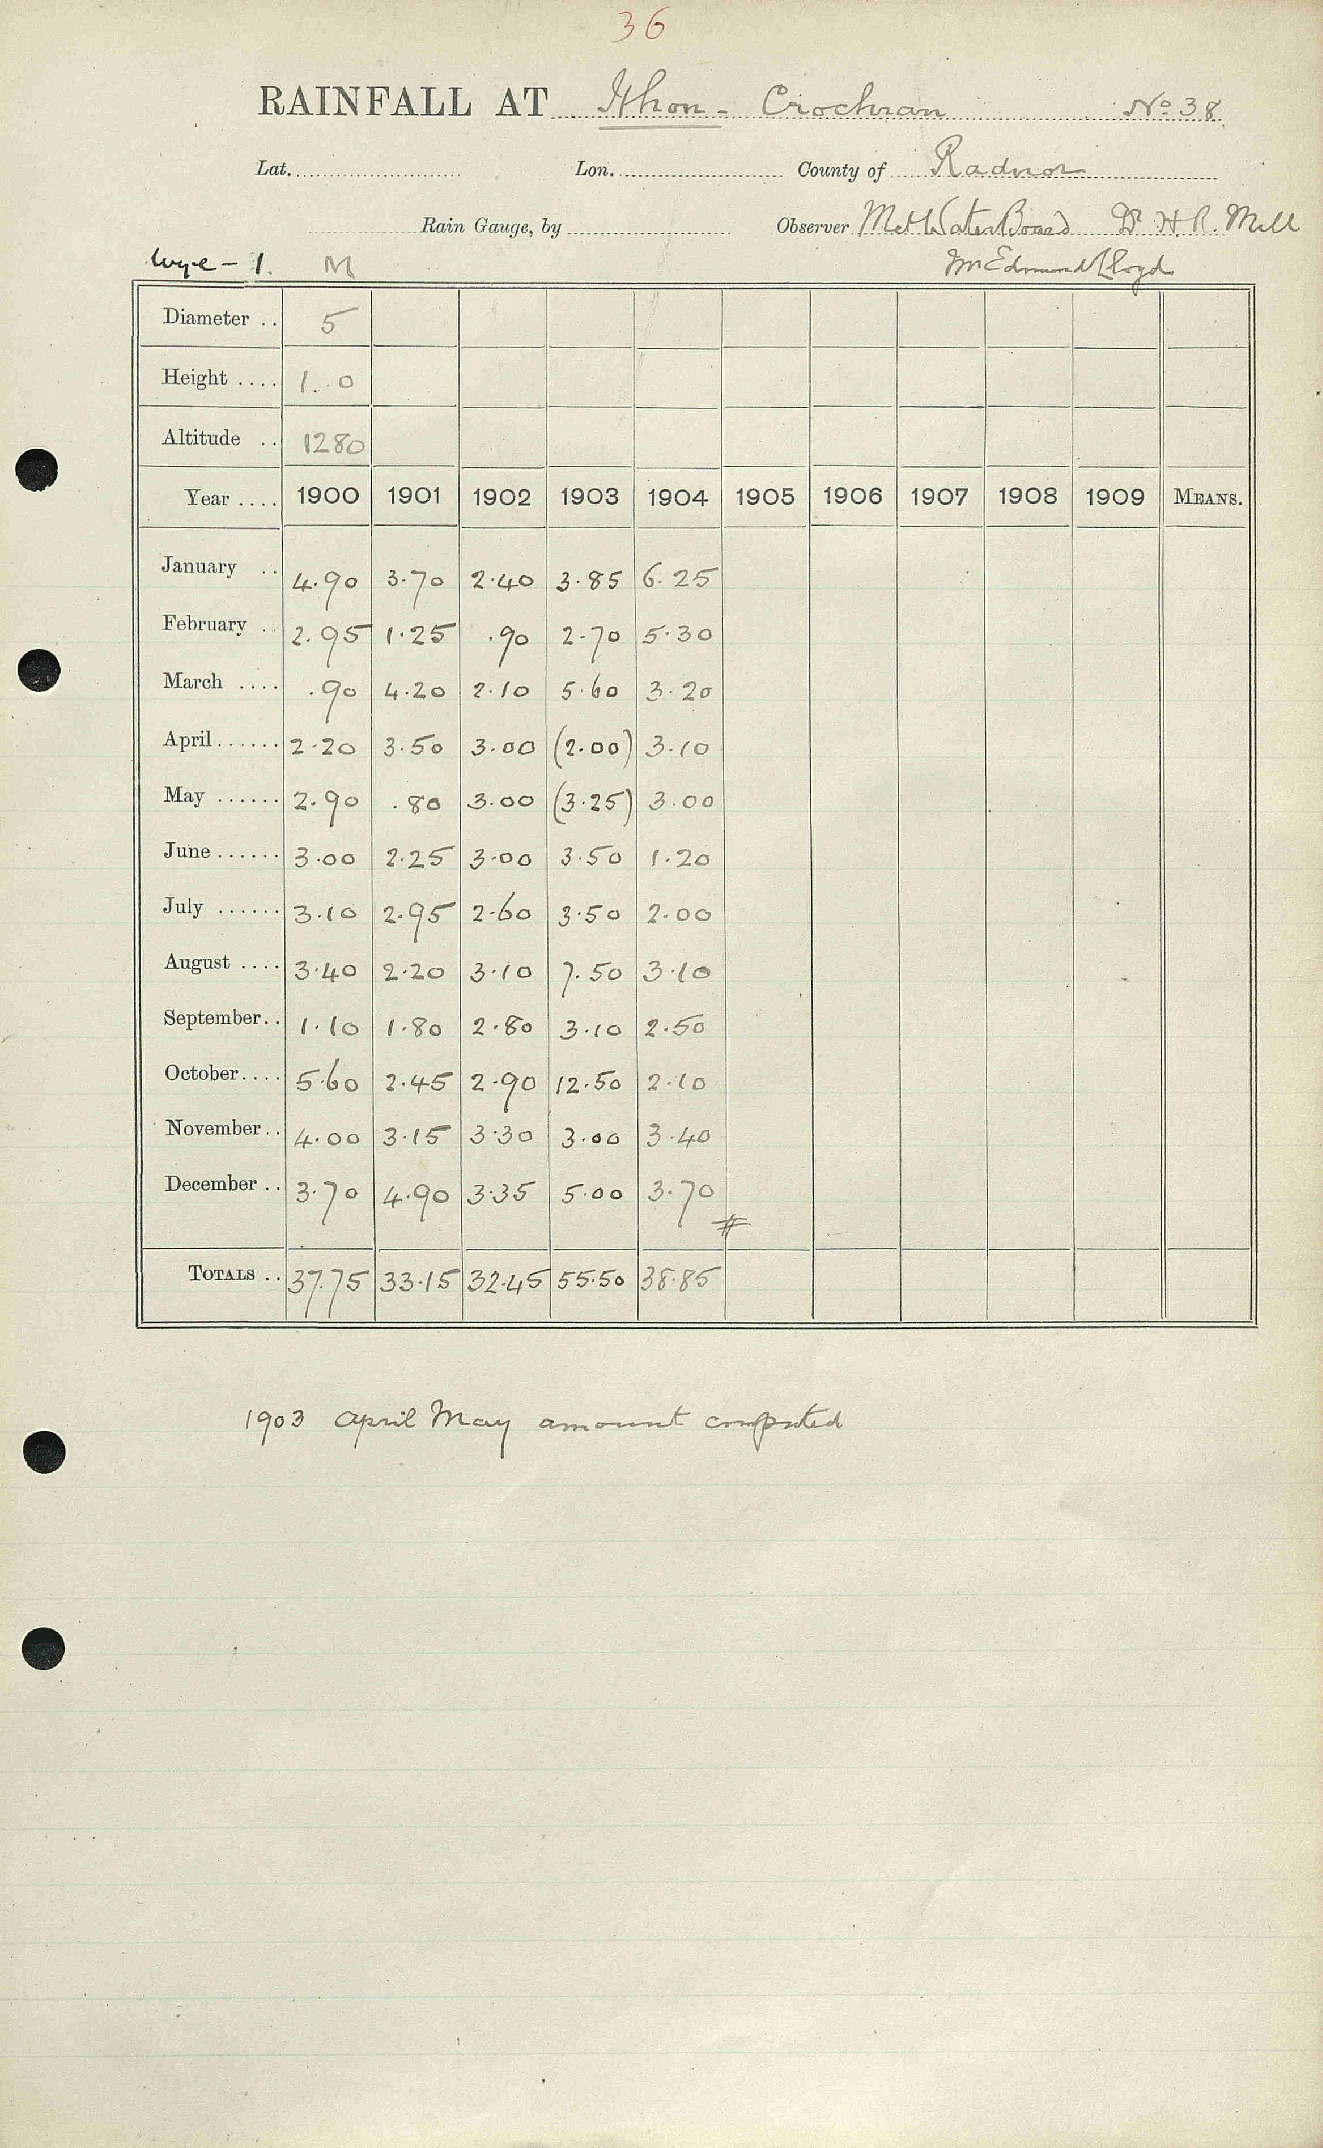 36
RAINFALL AT Ithon - Crochran No 38
Lat. Lon. County of Radnor
Rain Gauge, by Observer Met Water Board Dr H. R. Mill
Wye - 1. M Mr Edmund Lloyd
Diameter .. 5
Height .... 1.0
Altitude .. 1280
Year .... 1900 1901 1902 1903 1904 1905 1906 1907 1908 1909 MEANS.
January .. 4.90 3.70 2.40 3.85 6.25
February .. 2.95 1.25 .90 2.70 5.30
March .... .90 4.20 2.10 5.60 3.20
April...... 2.20 3.50 3.00 (2.00) 3.10
May ...... 2.90 .80 3.00 (3.25) 3.00
June...... 3.00 2.25 3.00 3.50 1.20
July ...... 3.10 2.95 2.60 3.50 2.00
August .... 3.40 2.20 3.10 7.50 3.10
September.. 1.10 1.80 2.80 3.10 2.50
October.... 5.60 2.45 2.90 12.50 2.10
November.. 4.00 3.15 3.30 3.00 3.40
December .. 3.70 4.90 3.35 5.00 3.70
#
TOTALS .. 37.75 33.15 32.45 55.50 38.85
1903 April May amount computed